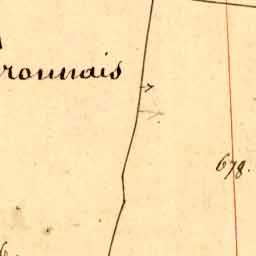 ronnais
678.